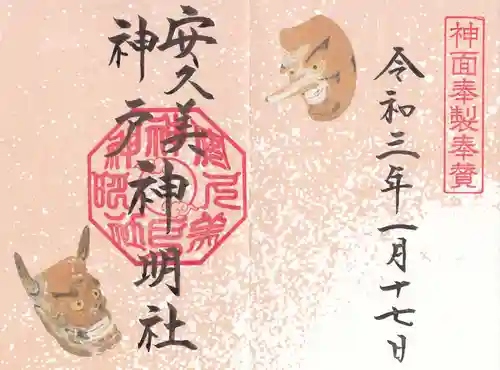 神面奉製奉賛
令和三年一月十七日
安久美
神戸神明社